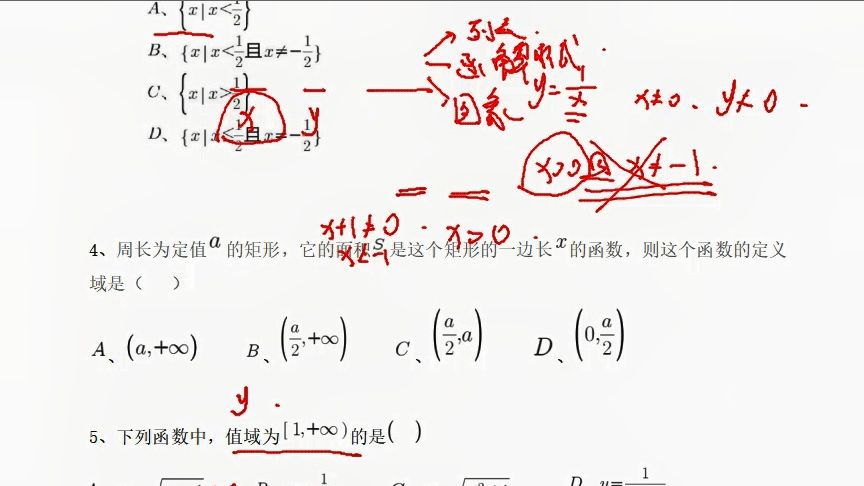 A、{x|x<1/2}
B、{x|x<1/2且x≠-1/2}
C、{x|x>1/2}
D、{x|x<1/2且x≠-1/2}
x y
y=1/x x≠0. y≠0.
x>0且 x≠-1.
x+1≠0. x>0.
x≠-1
4、周长为定值a的矩形，它的面积S是这个矩形的一边长x的函数，则这个函数的定义
域是（ ）
A、(a,+∞) B、(a/2,+∞) C、(a/2,a) D、(0,a/2)
y.
5、下列函数中，值域为[1,+∞)的是( )